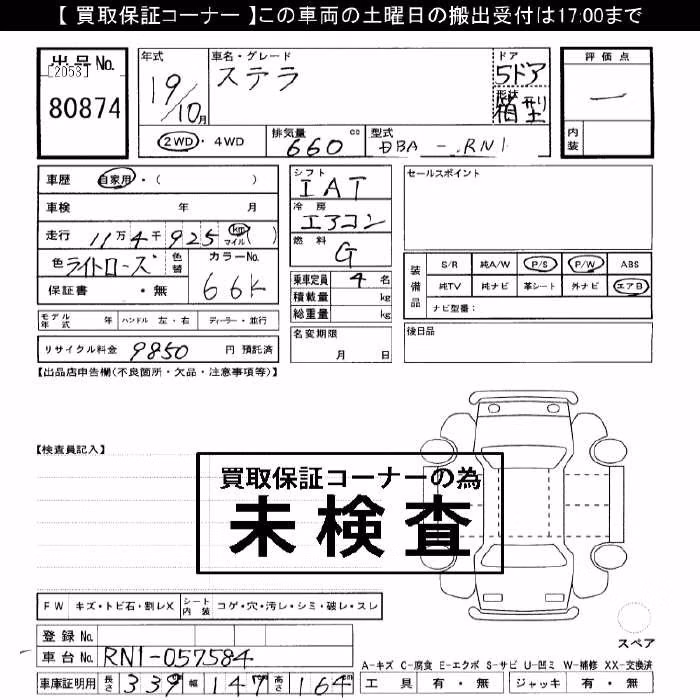 【買取保証コーナー】この車両の土曜日の搬出受付は17:00まで
出品No. [2053] 80874
年式 19/10月
車名・グレード ステラ
ドア 5ドア
形状 箱型
評価点 —
内装
2WD・4WD
排気量 660 cc
型式 DBA-RN1
車歴 自家用・( )
車検 年 月
走行 11万4千925 km マイル ( )
色 ライトローズ 色替
カラーNo. 66K
保証書 ・無
モデル年式 年 ハンドル 左・右 ディーラー・並行
リサイクル料金 9850 円 預託済
シフト IAT
冷房 エアコン
燃料 G
乗車定員 4 名
積載量 kg
総重量 kg
名変期限 月 日
セールスポイント
装備品 S/R 純A/W P/S P/W ABS
純TV 純ナビ 革シート 外ナビ エアB
ナビ型番：
後日品
【出品店申告欄(不良箇所・欠品・注意事項等)】
【検査員記入】
買取保証コーナーの為
未検査
FW キズ・トビ石・割レX シート内装 コゲ・穴・汚レ・シミ・破レ・スレ
登録No.
車台No. RN1-057584
車庫証明用 長さ 339 幅 147 高さ 164 cm
スペア
A-キズ C-腐食 E-エクボ S-サビ U-凹ミ W-補修 XX-交換済
工具 有・無 ジャッキ 有・無